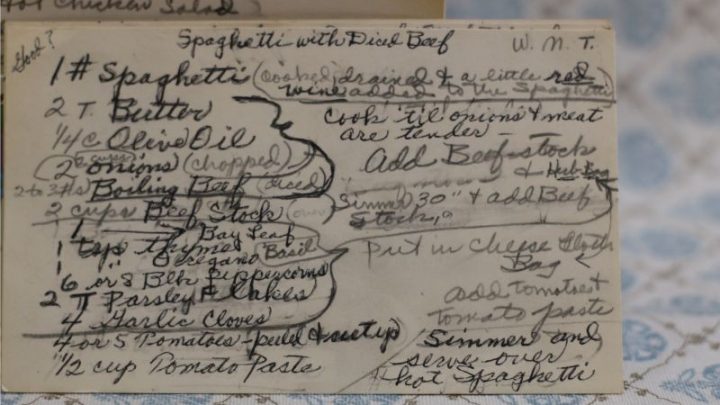 Hot Chicken Salad
Good?
Spaghetti with Diced Beef
W. M. T.
1 # Spaghetti (cooked, drained & a little red
wine added to the Spaghetti)
2 T. Butter
1/4 c Olive Oil
(2 onions) (chopped)
2 to 3 #s Boiling Beef (diced)
2 cups Beef Stock
1 Bay Leaf
1 tsp thyme
Oregano Basil
6 or 8 Blk peppercorns
2 T Parsley Flakes
4 Garlic Cloves
4 or 5 Tomatoes - peeled & cut up
1/2 cup Tomato Paste
Cook 'til onions & meat
are tender -
Add Beef stock
& Herb Bag
Simmer 30" & add Beef
Stock
Put in Cheese Cloth
Bag
add tomatoes &
tomato paste
Simmer and
serve over
hot Spaghetti